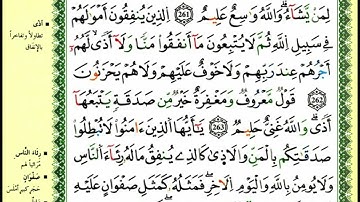 لِمَن يَشَآءُ ۗ وَٱللَّهُ وَٰسِعٌ عَلِيمٌ ٢٦١ ٱلَّذِينَ يُنفِقُونَ أَمْوَٰلَهُمْ
فِى سَبِيلِ ٱللَّهِ ثُمَّ لَا يُتْبِعُونَ مَآ أَنفَقُوا۟ مَنًّا وَلَآ أَذًى ۙ لَّهُمْ
أَجْرُهُمْ عِندَ رَبِّهِمْ وَلَا خَوْفٌ عَلَيْهِمْ وَلَا هُمْ يَحْزَنُونَ
٢٦٢ قَوْلٌ مَّعْرُوفٌ وَمَغْفِرَةٌ خَيْرٌ مِّن صَدَقَةٍ يَتْبَعُهَآ
أَذًى ۗ وَٱللَّهُ غَنِىٌّ حَلِيمٌ ٢٦٣ يَٰٓأَيُّهَا ٱلَّذِينَ ءَامَنُوا۟ لَا تُبْطِلُوا۟
صَدَقَٰتِكُم بِٱلْمَنِّ وَٱلْأَذَىٰ كَٱلَّذِى يُنفِقُ مَالَهُۥ رِئَآءَ ٱلنَّاسِ
وَلَا يُؤْمِنُ بِٱللَّهِ وَٱلْيَوْمِ ٱلْءَاخِرِ ۖ فَمَثَلُهُۥ كَمَثَلِ صَفْوَانٍ عَلَيْهِ
أذى
تطاولاً وتفاخراً
بالإنفاق
رئاء الناس
صفوان